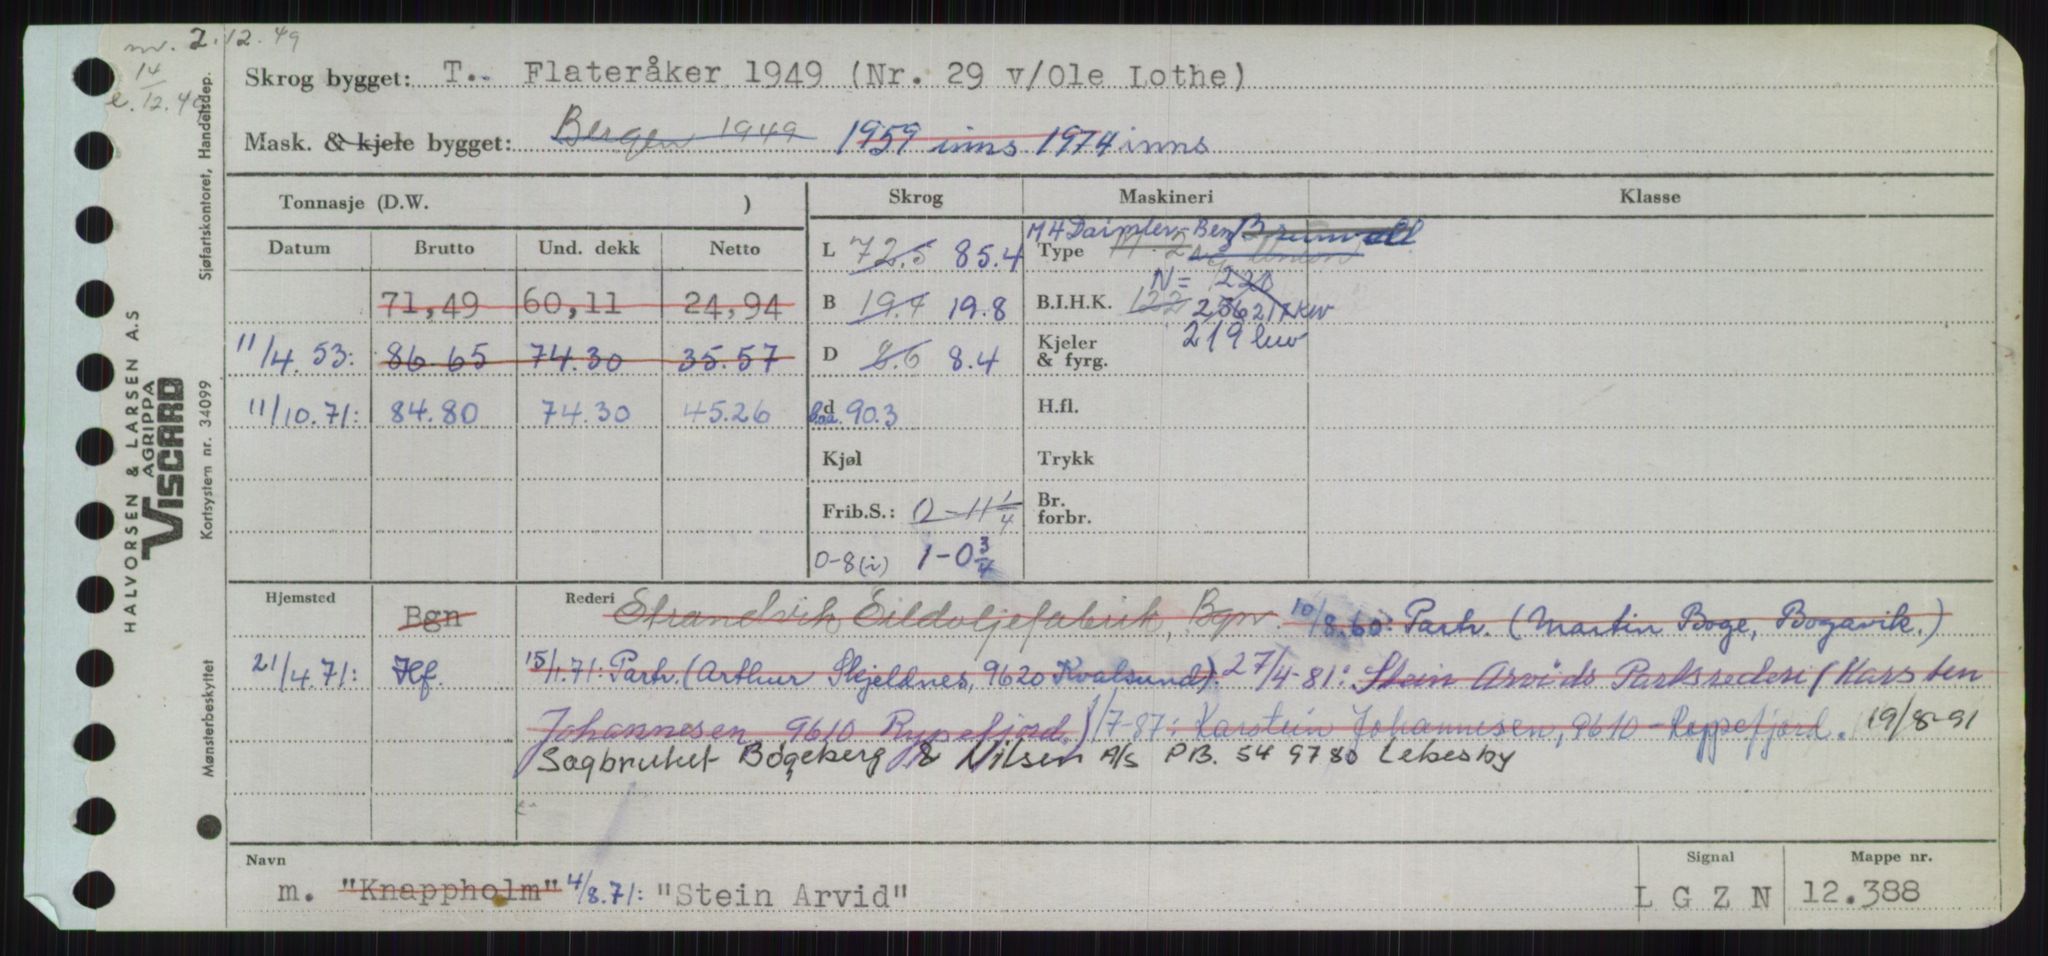 nr. 2.12.49
14
e. 12.49
Skrog bygget: T. Flateråker 1949 (Nr. 29 v/Ole Lothe)
Mask. & kjele bygget: Bergen 1949 1959 inns 1974 inns
Tonnasje (D.W. )
Datum Brutto Und. dekk Netto
71,49 60,11 24,94
11/4.53: 86.65 74.30 35.57
11/10.71: 84.80 74.30 45.26
Skrog Maskineri Klasse
M4 Daimler-Ben Brunvoll
L 72.5 85.4 Type Union
N= 122
B 19.7 19.8 B.I.H.K. 122 256 217 kw
219 kw
D 8.6 8.4 Kjeler & fyrg.
d l.o.a. 90.3 H.fl.
Kjøl Trykk
Frib.S.: 0-11 1/4 Br. forbr.
0-8(i) 1-0 3/4
Hjemsted Bgn Rederi Strandvik Sildoljefabrik, Bgn. 10/8.60: Partr. (Martin Boge, Bogavik.)
21/4.71: Hf. 15/1.71: Partr. (Arthur Skjeldnes, 9620 Kvalsund). 27/4-81: Stein Arvids Partsrederi (Karsten
Johannesen, 9610 Rypefjord.) 1/7-87: Karstein Johannesen, 9610 - Rypefjord. 19/8-91
Sagbruket Bøgeberg & Nilsen A/S P.B. 54 9780 Lebesby
Navn Signal Mappe nr.
m. "Knappholm" 4/8.71: "Stein Arvid" L G Z N 12.388
HALVORSEN & LARSEN A.S
AGRIPPA
VISCARD
Mønsterbeskyttet Kortsystem nr. 34099 Sjøfartskontoret, Handelsdep.